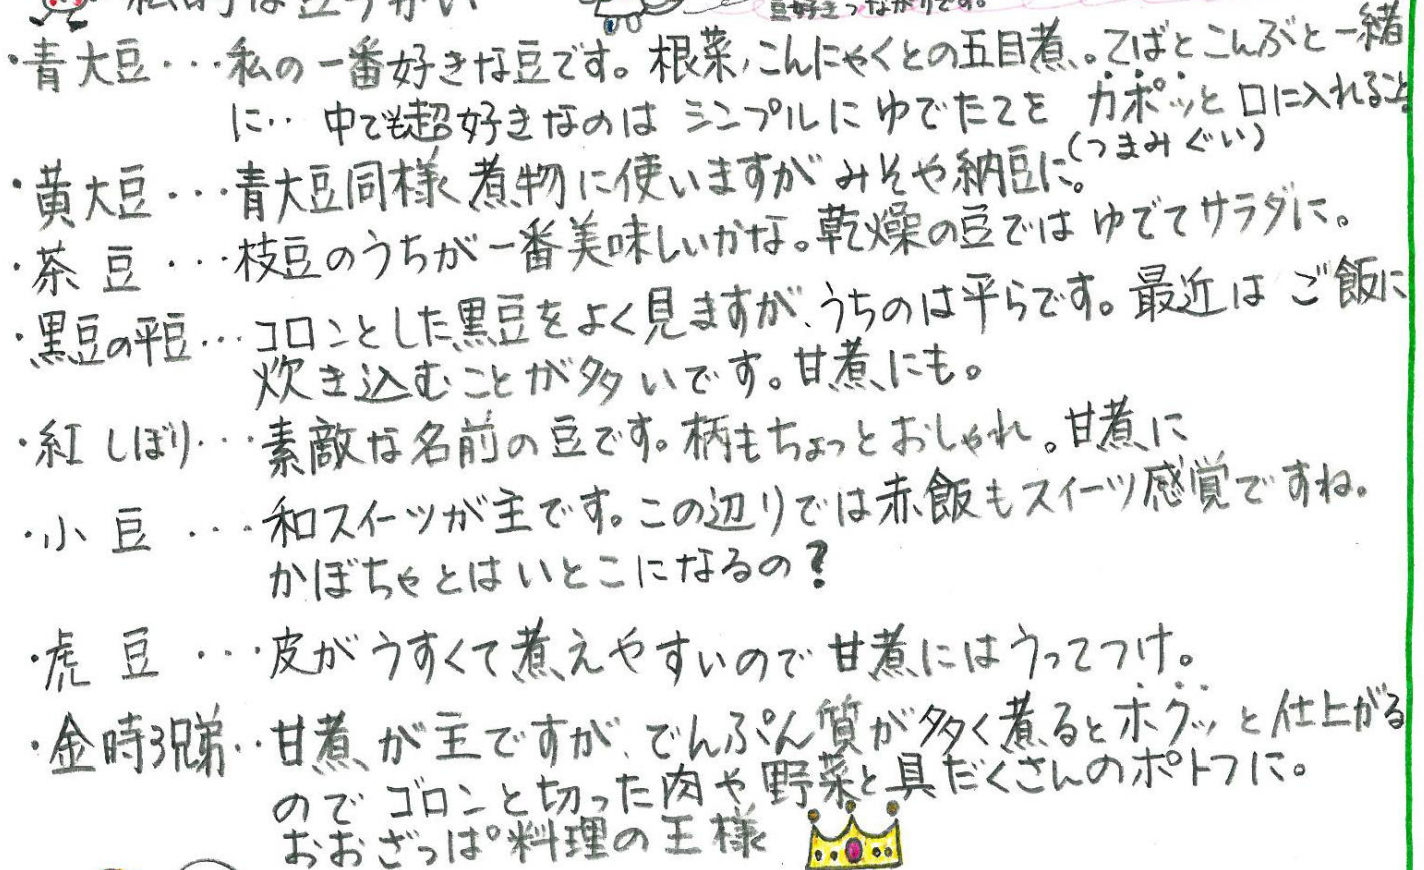 私的な豆づかい
豆好きつながりです。
・青大豆・・・私の一番好きな豆です。根菜、こんにゃくとの五目煮。てばとこんぶと一緒
に・・中でも超好きなのはシンプルにゆでたてをカポッと口に入れること
(つまみぐい)
・黄大豆・・・青大豆同様煮物に使いますがみそや納豆に。
・茶豆・・・枝豆のうちが一番美味しいかな。乾燥の豆ではゆでてサラダに。
・黒豆の平豆・・・コロンとした黒豆をよく見ますが、うちのは平らです。最近はご飯に
炊き込むことが多いです。甘煮にも。
・紅しぼり・・・素敵な名前の豆です。柄もちょっとおしゃれ。甘煮に
・小豆・・・和スイーツが主です。この辺りでは赤飯もスイーツ感覚ですね。
かぼちゃとはいとこになるの?
・虎豆・・・皮がうすくて煮えやすいので甘煮にはうってつけ。
・金時3兄弟・・甘煮が主ですが、でんぷん質が多く煮るとホクッと仕上がる
のでゴロンと切った肉や野菜と具だくさんのポトフに。
おおざっぱ料理の王様